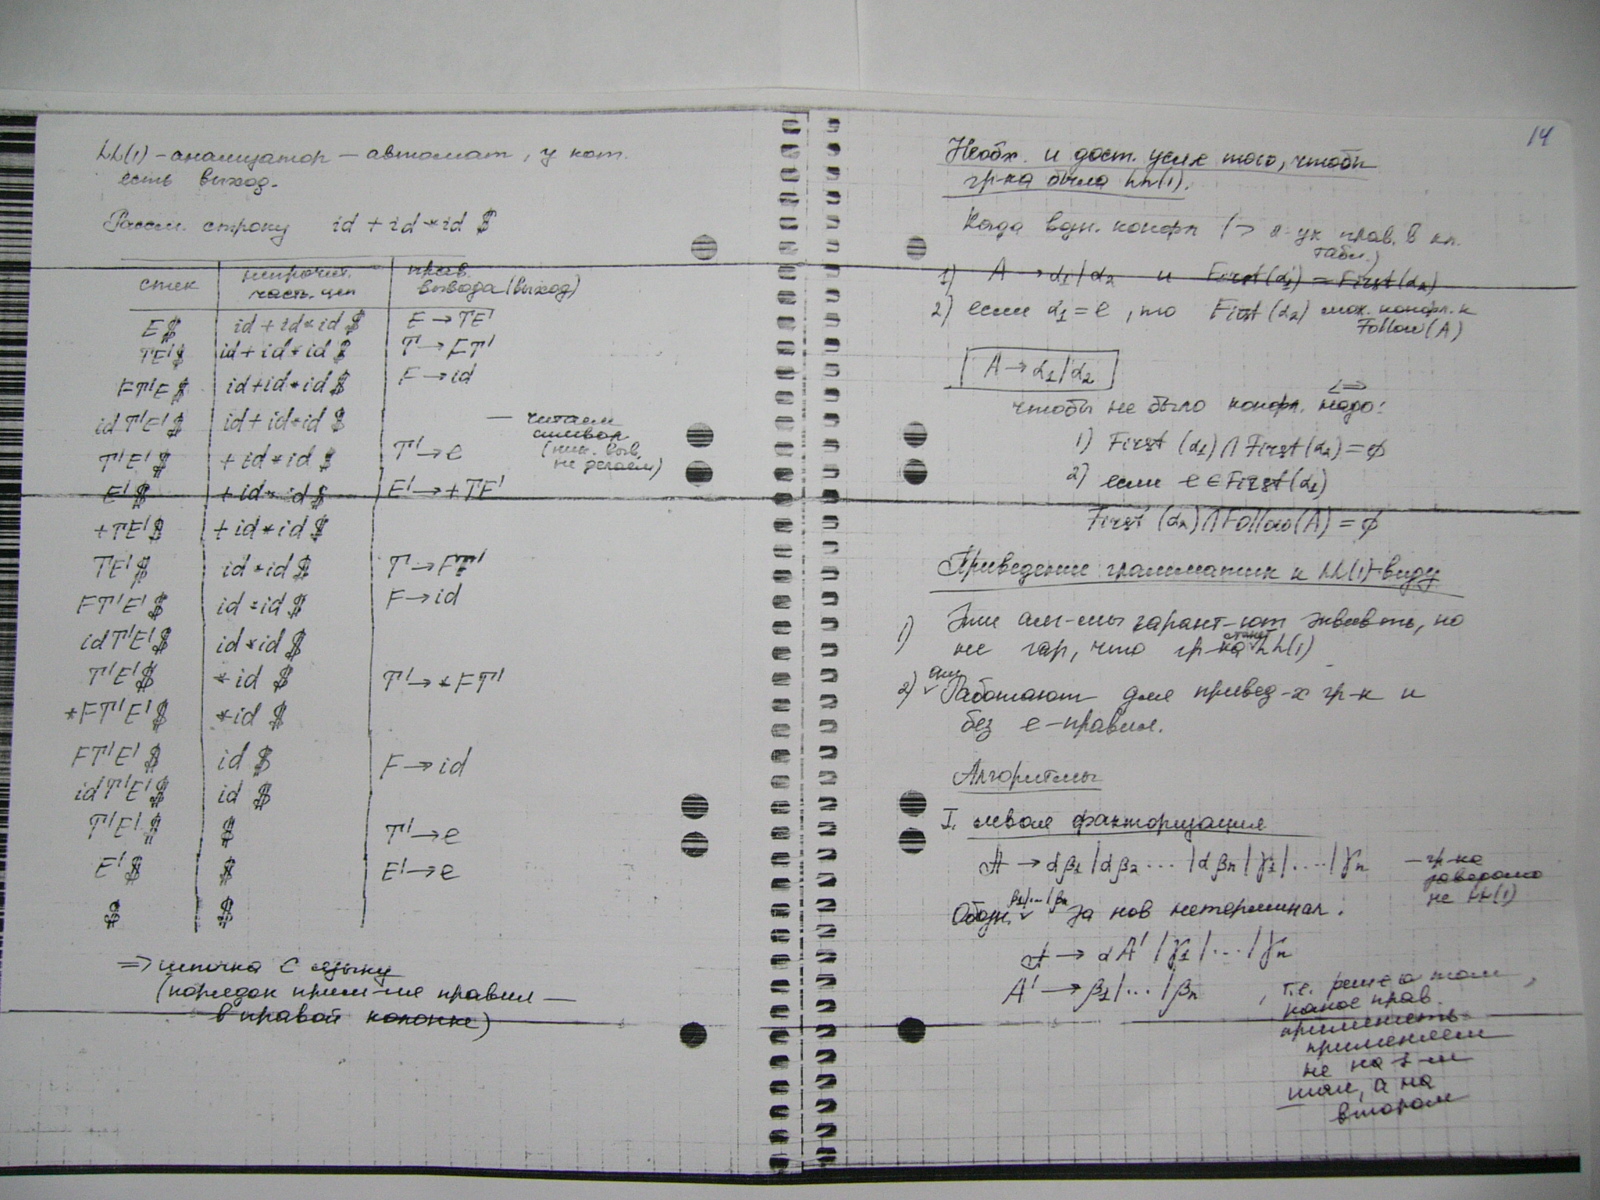 LL(1)-анализатор – автомат, у кот.
есть выход.
Рассм. строку id + id * id $
стек | непрочит. часть цеп | прав. вывода (выход)
E$ | id + id * id $ | E → TE'
TE'$ | id + id * id $ | T → FT'
FT'E'$ | id + id * id $ | F → id
idT'E'$ | id + id * id $ — читаем символ (ник. выв. не делаем)
T'E'$ | + id * id $ | T' → e
E'$ | + id * id $ | E' → +TE'
+TE'$ | + id * id $
TE'$ | id * id $ | T → FT'
FT'E'$ | id * id $ | F → id
idT'E'$ | id * id $
T'E'$ | * id $ | T' → *FT'
*FT'E'$ | * id $
FT'E'$ | id $ | F → id
idT'E'$ | id $
T'E'$ | $ | T' → e
E'$ | $ | E' → e
$ | $
⇒ цепочка ∈ языку
(порядок прим-ия правил —
в правой колонке)
14
Необх. и дост. усл-е того, чтобы
гр-ка была LL(1).
Когда возн. конфл (> 1 ук прав. в кл.
табл.)
1) A → α1 | α2 и First(α1) = First(α2)
2) если α1 = e, то First(α2) мож. конфл. к
Follow(A)
A → α1 | α2
⇔
чтобы не было конфл. надо:
1) First (α1) ∩ First(α2) = ∅
2) если e ∈ First(α1)
First (α2) ∩ Follow(A) = ∅
Приведение грамматик к LL(1)-виду
1) Эти алг-мы гарант-ют экв-ть, но
не гар, что гр-ка станет LL(1)
2) Работают для привед-х гр-к и
без e-правил.
Алгоритмы
I. левая факторизация
A → αβ1 | αβ2 ... | αβn | γ1 | .... | γn — гр-ка
заведомо
не LL(1)
Обозн. β1|...|βn за нов нетерминал.
A → αA' | γ1 | ... | γn
A' → β1 | ... | βn , т.е. реш-е о том,
какое прав.
применять
применяем
не на 1-м
шаге, а на
втором